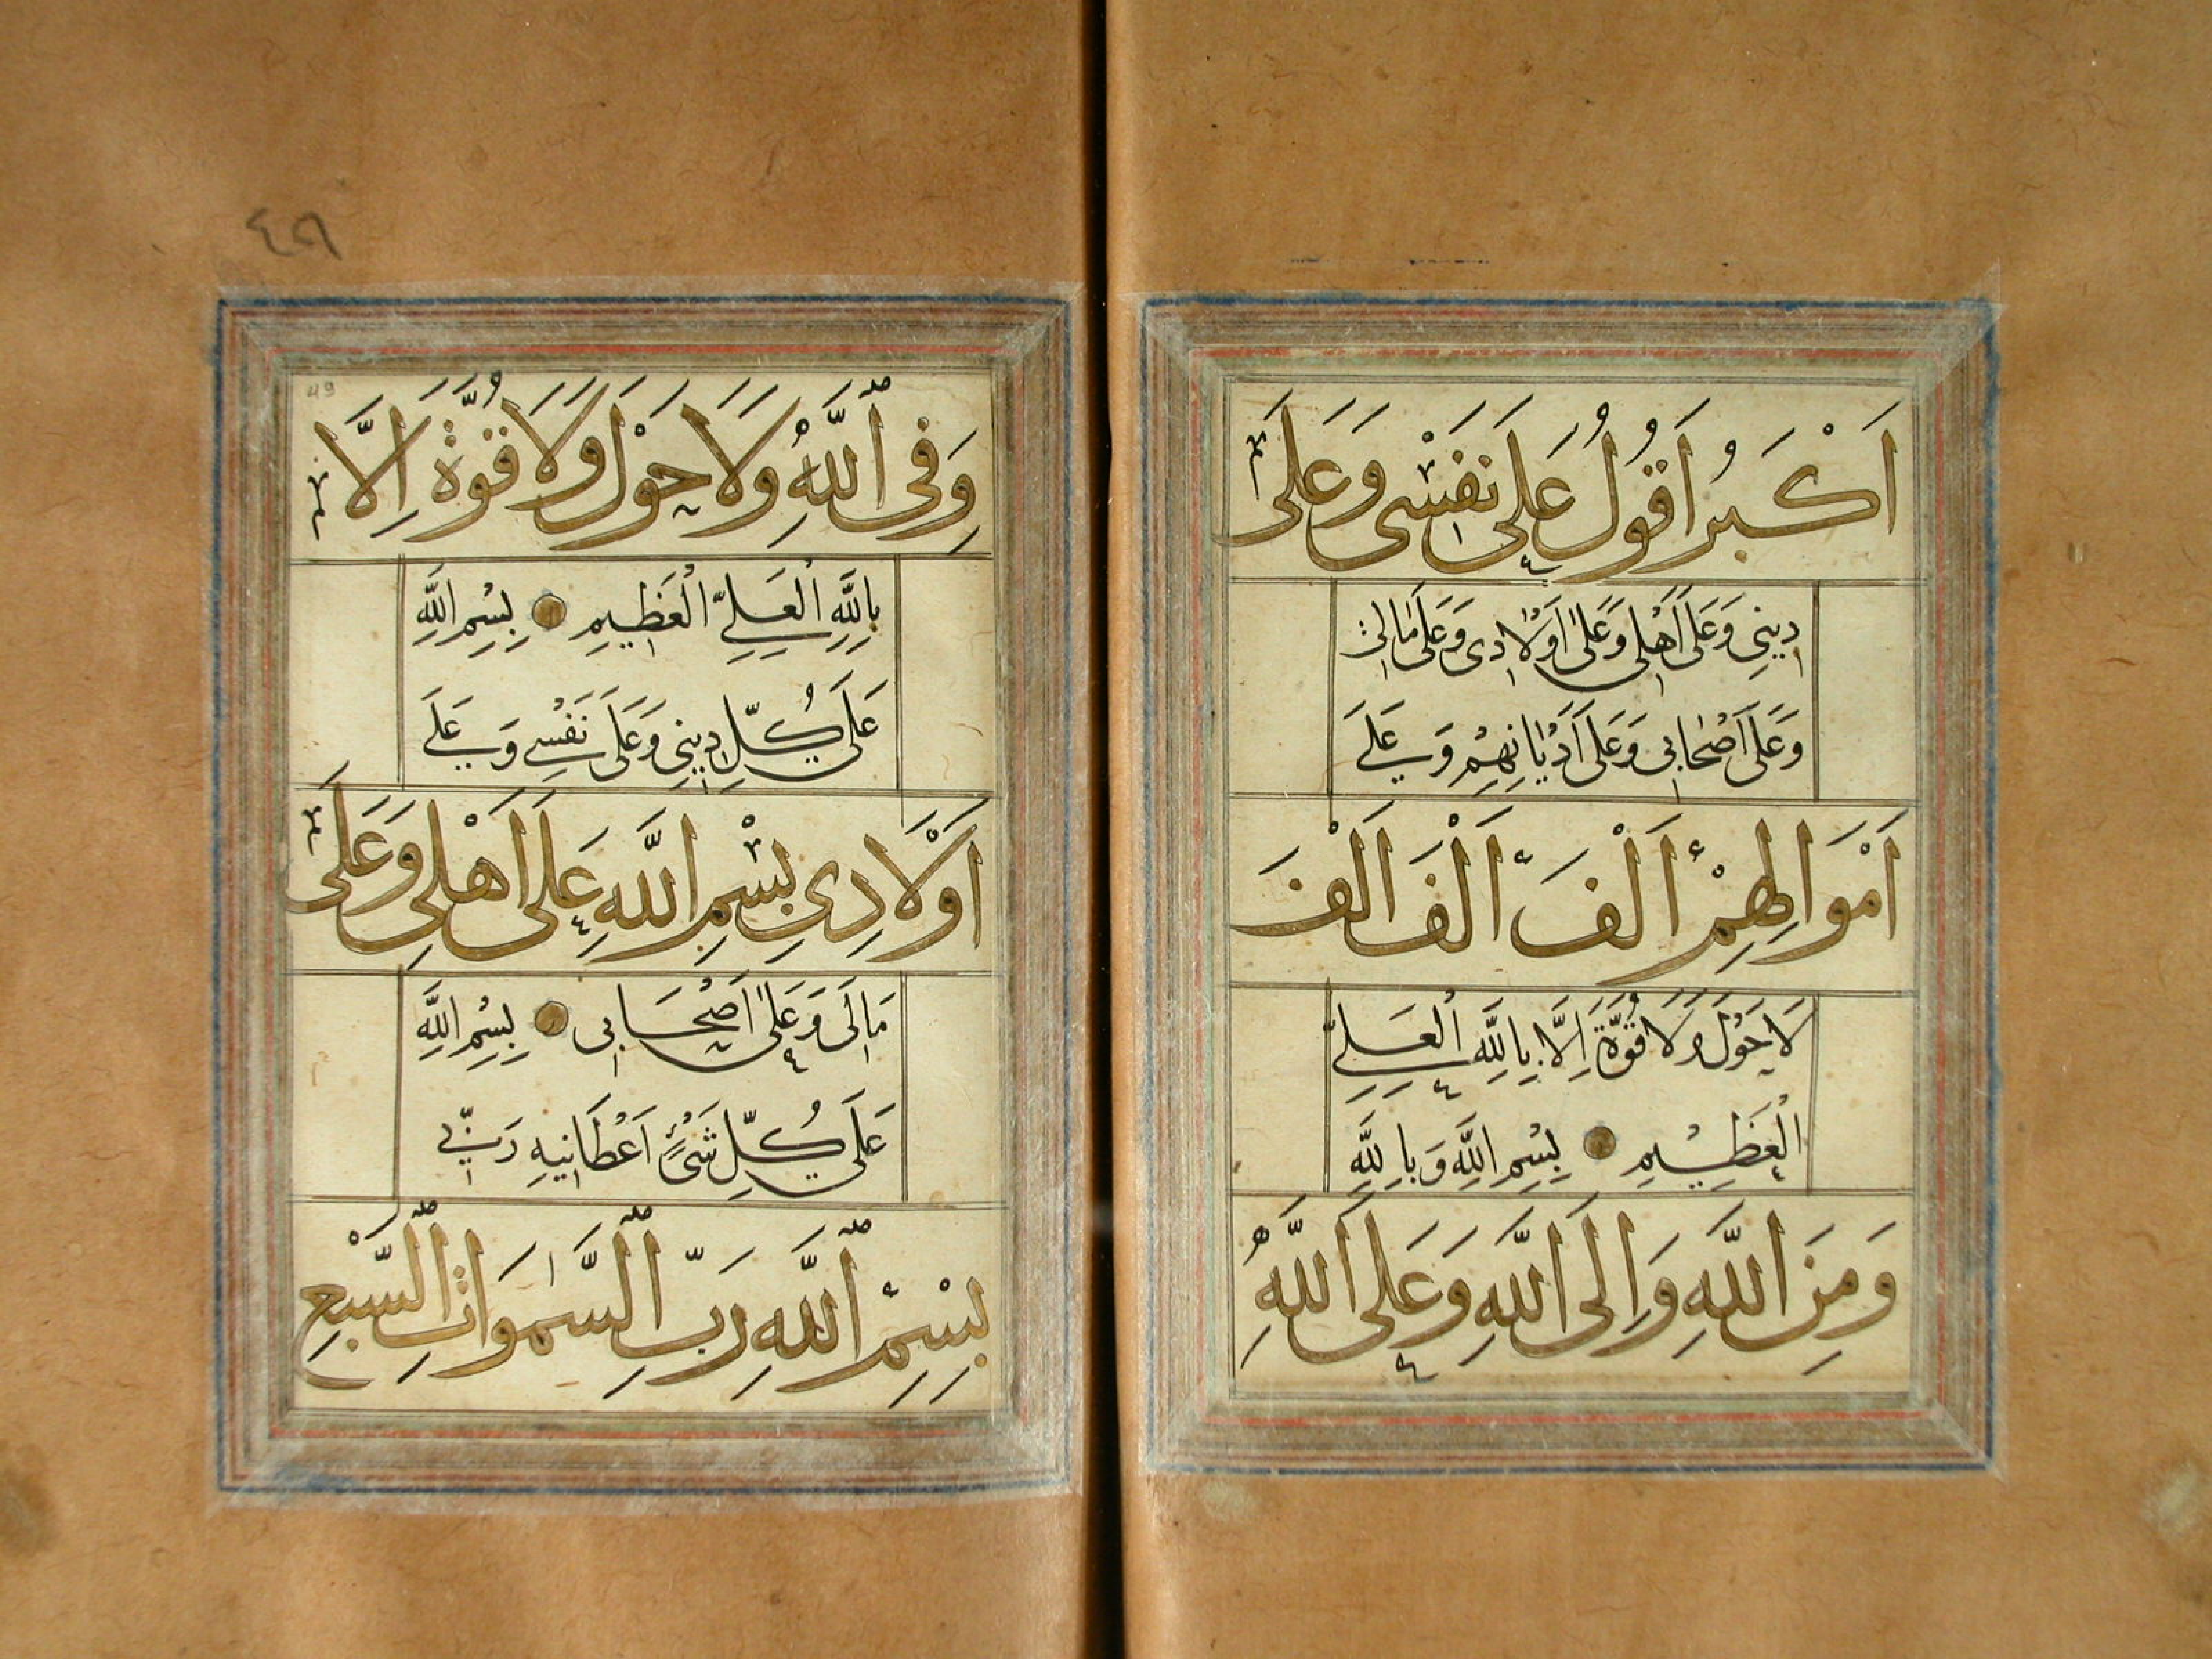 اَكْبَرُ اَقُولُ عَلَى نَفْسِى وَعَلَى
دِينِى وَعَلَى اَهْلِى وَعَلَى اَوْلَادِى وَعَلَى مَالِى
وَعَلَى اَصْحَابِى وَعَلَى اَدْيَانِهِمْ وَعَلَى
اَمْوَالِهِمْ اَلْفَ اَلْفِ اَلْفَ
لَا حَوْلَ وَلَا قُوَّةَ اِلَّا بِاللَّهِ الْعَلِىِّ
الْعَظِيمِ بِسْمِ اللَّهِ وَبِاللَّهِ
وَمِنَ اللَّهِ وَاِلَى اللَّهِ وَعَلَى اللَّهِ
٤٩
49
وَفِى اللَّهِ وَلَا حَوْلَ وَلَا قُوَّةَ اِلَّا
بِاللَّهِ الْعَلِىِّ الْعَظِيمِ بِسْمِ اللَّهِ
عَلَى كُلِّ دِينِى وَعَلَى نَفْسِى وَعَلَى
اَوْلَادِى بِسْمِ اللَّهِ عَلَى اَهْلِى وَعَلَى
مَالِى وَعَلَى اَصْحَابِى بِسْمِ اللَّهِ
عَلَى كُلِّ شَىْءٍ اَعْطَانِيهِ رَبِّى
بِسْمِ اللَّهِ رَبِّ السَّمٰوَاتِ السَّبْعِ